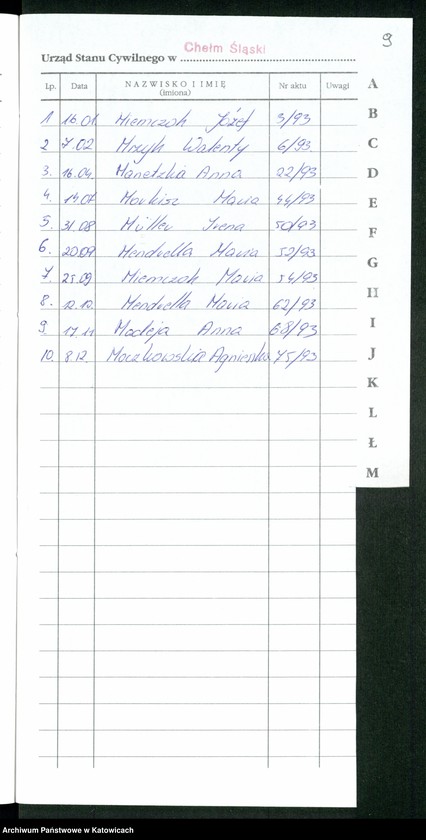 9
Chełm Śląski
Urząd Stanu Cywilnego w
Lp. Data NAZWISKO I IMIĘ (imiona) Nr aktu Uwagi
1 16.01. Miemczok Józef 3/93
2 7.02 Mrzyk Walenty 6/93
3. 16.04. Manetzkia Anna 22/93
4. Markisz Maria 44/93
5. 31.08 Müller Irena 50/93
6. 20.09 Mendrella Maria 52/93
7. 25.09 Miemczok Maria 54/93
8. 12.10. Mendrella Maria 62/93
9. 17.11 Madeja Anna 68/93
10. 8.12. Moczkowska Agnieszka 75/93
A
B
C
D
E
F
G
H
I
J
K
L
Ł
M
Archiwum Państwowe w Katowicach